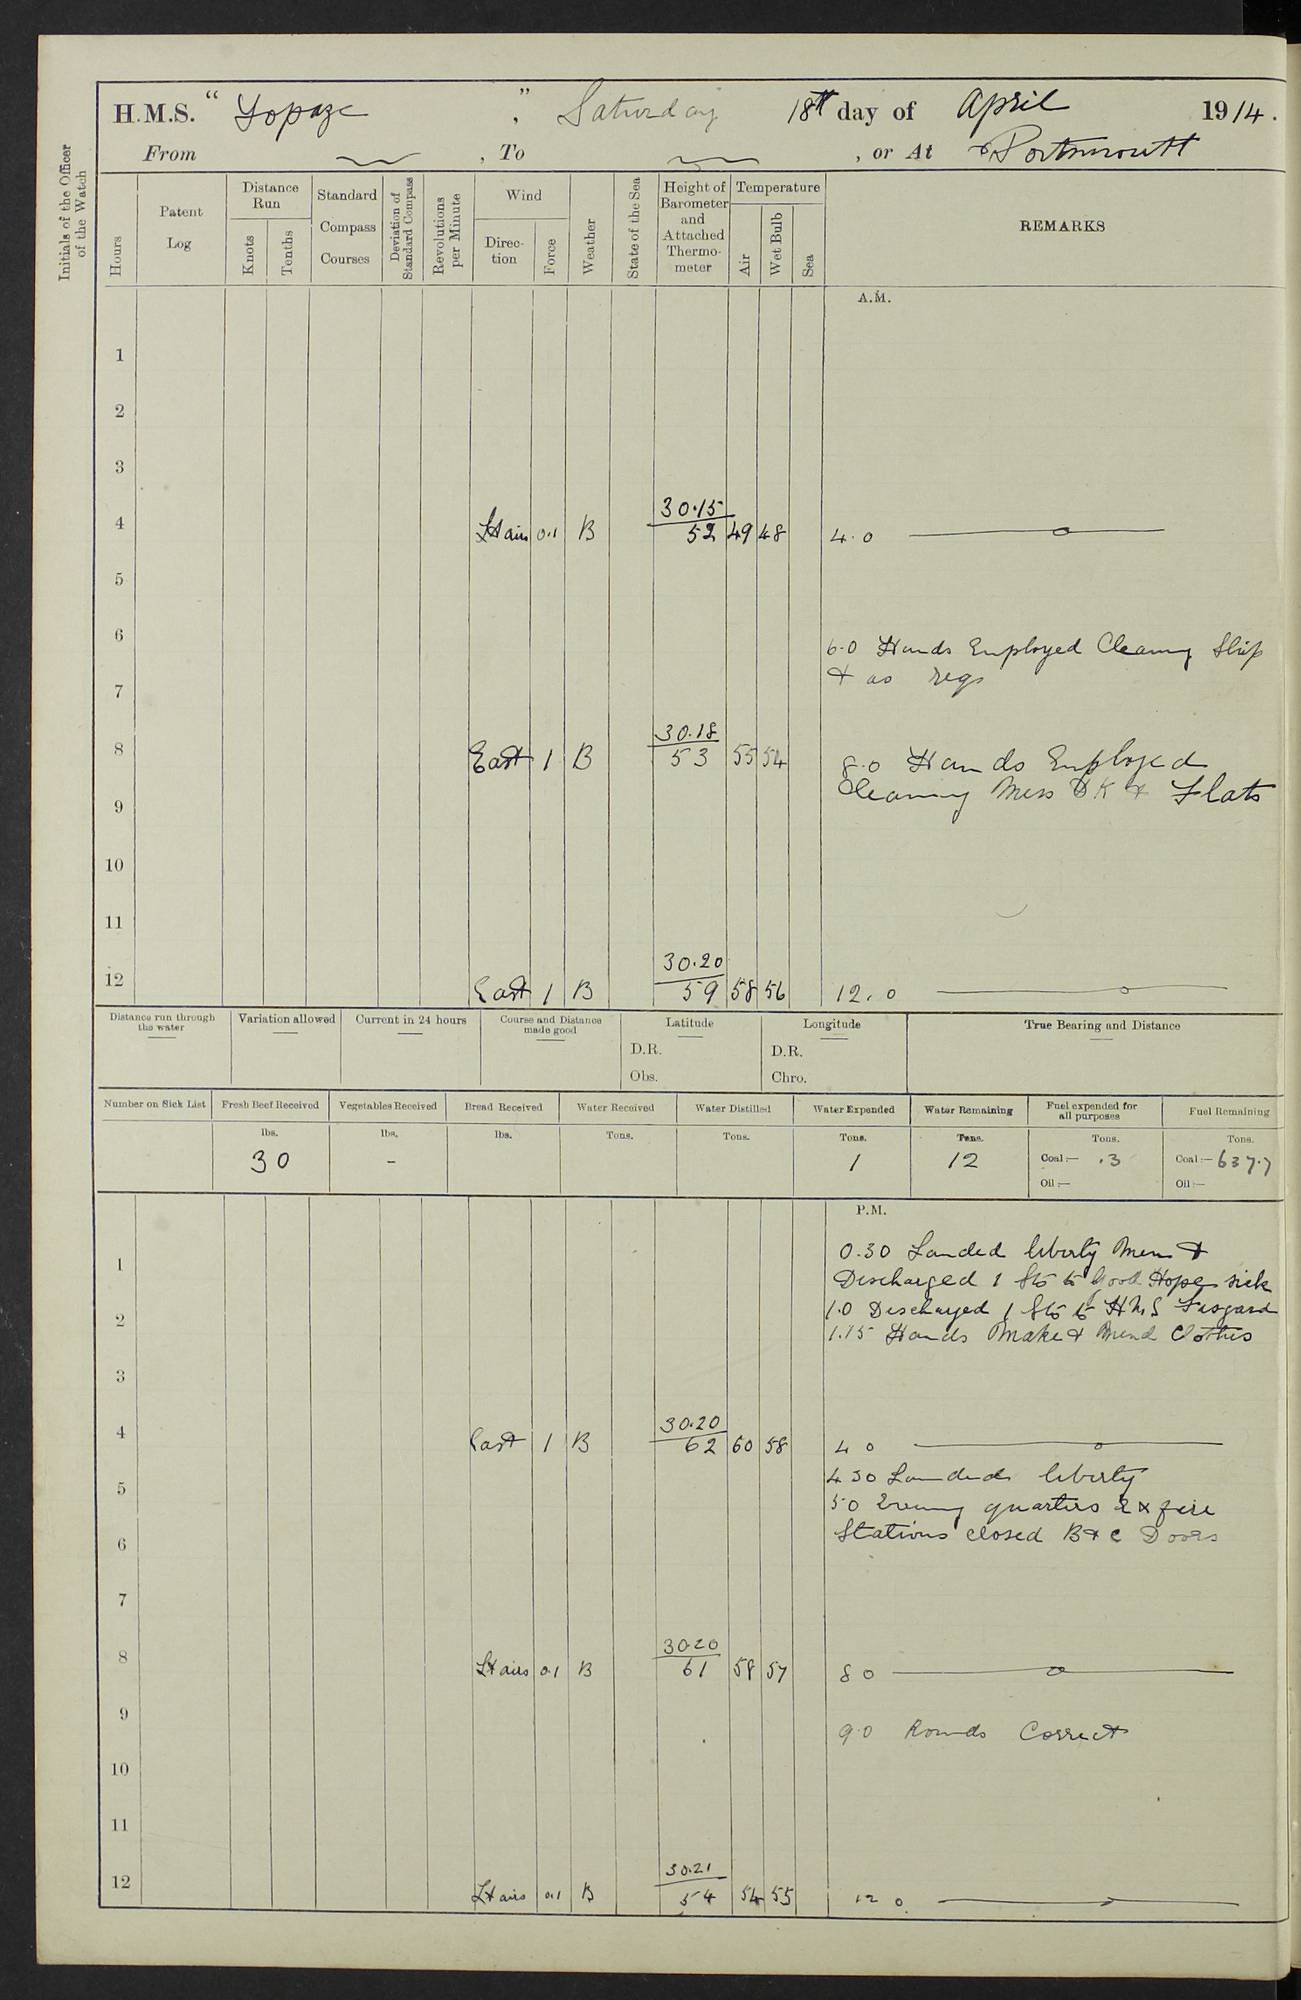 H.M.S. "Topaze", Saturday 18th day of April 1914.
From , To , or At Portsmouth
Initials of the Officer of the Watch
Hours
Patent Log
Distance Run
Knots
Tenths
Standard Compass Courses
Deviation of Standard Compass
Revolutions per Minute
Wind
Direction
Force
Weather
State of the Sea
Height of Barometer and Attached Thermometer
Temperature
Air
Wet Bulb
Sea
REMARKS
A.M.
1
2
3
30.15
4 Lt airs 0.1 B 52 49 48 4.0
5
6 6.0 Hands Employed Cleaning Ship
& as reqs
7
30.18
8 East 1 B 53 55 54 8.0 Hands Employed
Cleaning Mess DK & Flats
9
10
11
30.20
12 East 1 B 59 58 56 12.0
Distance run through the water
Variation allowed
Current in 24 hours
Course and Distance made good
Latitude
D.R.
Obs.
Longitude
D.R.
Chro.
True Bearing and Distance
Number on Sick List
Fresh Beef Received
lbs.
30
Vegetables Received
lbs.
-
Bread Received
lbs.
Water Received
Tons.
Water Distilled
Tons.
Water Expended
Tons.
1
Water Remaining
Tons.
12
Fuel expended for all purposes
Tons.
Coal:— .3
Oil:—
Fuel Remaining
Tons.
Coal:— 637.7
Oil:—
P.M.
0.30 Landed liberty Men &
1 Discharged 1 Sto to Good Hope sick
1.0 Discharged 1 Sto to HMS Fisgard
2 1.15 Hands Make & Mend Clothes
3
30.20
4 East 1 B 62 60 58 4 0
4 30 Landed liberty
5 5 0 Evening quarters Ex fire
Stations closed B & C Doors
6
7
30.20
8 Lt airs 0.1 B 61 58 57 8 0
9 9.0 Rounds Correct
10
11
30.21
12 Lt airs 0.1 B 54 54 55 12 0